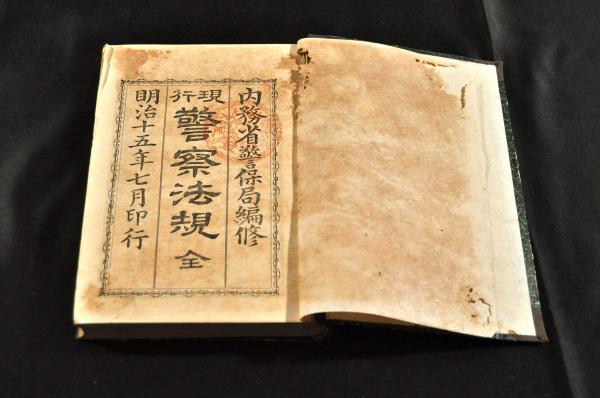 内務省警保局編修
現行
警察法規 全
明治十五年七月印行